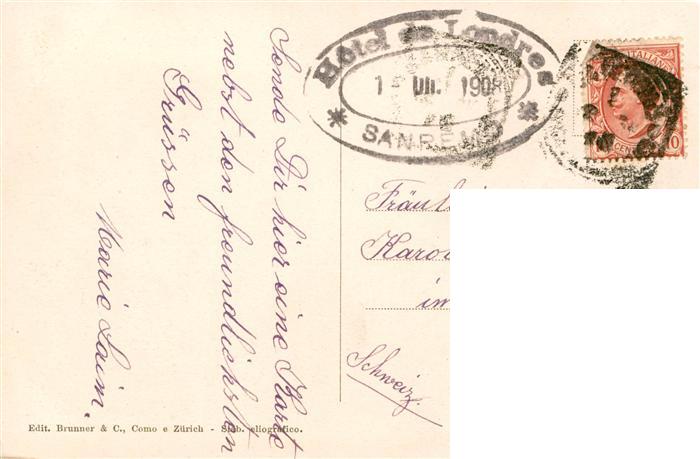 Hôtel de Londres
1 - DII. 1908
* SANREMO *
ITALIANE
10
CENT
Sende Dir hier eine Karte
nebst den freundlichsten
Grüssen
Marie Laim.
Fräul
Karo
im
Schweiz.
Edit. Brunner & C., Como e Zürich - Stab. eliografico.